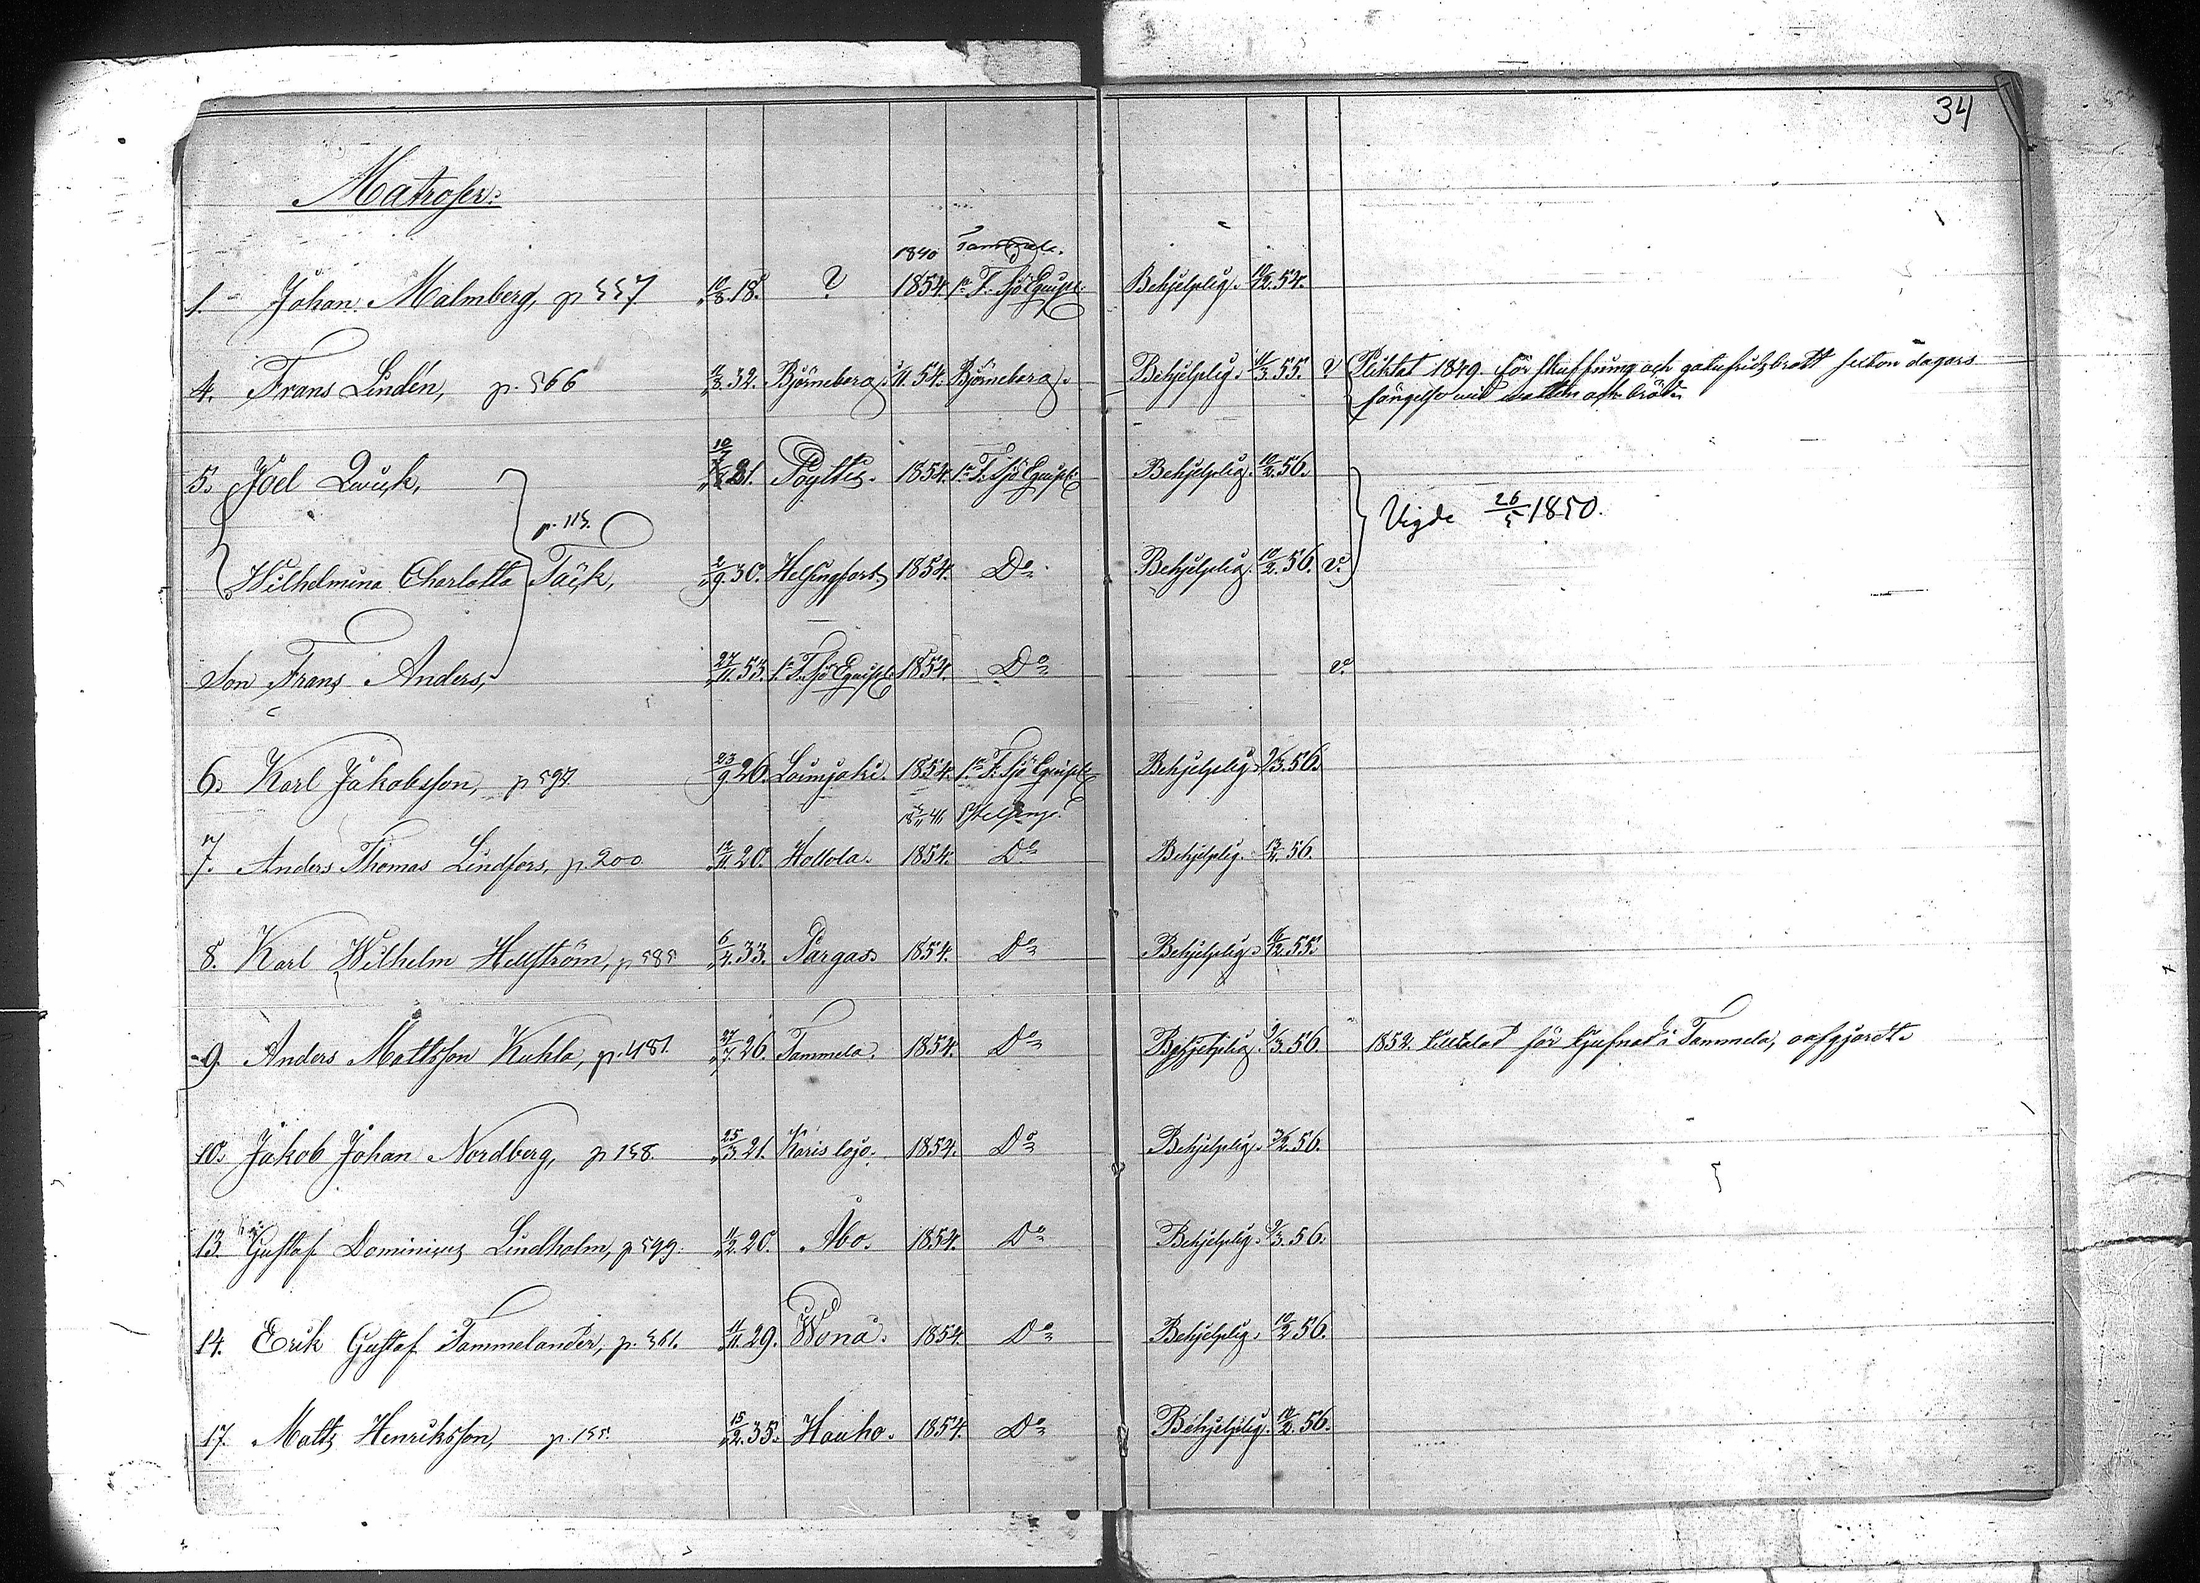 34
Matroser.
1840 Tammela.
1. Johan Malmberg, p 557 10/8 18. ? 1854. 1a F. Sjö Equip. Behjelplig. 10/2. 54.
4. Frans Lindén, p. 566 11/3 32. Björneborg. 11. 54. Björneborg. Behjelplig. 11/3. 55. v Pliktat 1849 för skuffning och gatufridsbrott dagars
fängelse vid vatten och bröd.
5. Joel Quick, 10/7 21. Pöyttis. 1854. 1a F. Sjö Equip. Behjelplig. 10/2. 56.
p. 115. Vigde 26/5 1850.
Wilhelmina Charlotta Täck, 2/9. 30. Helsingfors 1854. Do Behjelplig. 10/2. 56. v.
Son Frans Anders, 27/11. 53. 1a F. Sjö Equip. 1854. Do v.
6. Karl Jakobsson, p 597 23/9 26. Loimjoki. 1854. 1a F. Sjö Equip. Behjelplig. 9/3. 56.
7. Anders Thomas Lindfors, p. 200 20. Hollola. 1854. Do Behjelplig. 56.
8. Karl Wilhelm Hellström, p 585 6/4. 33. Pargas 1854. Do Behjelplig. 55.
9. Anders Mattsson Kuhla, p. 481 27/7 26. Tammela. 1854. Do Behjelplig. 9/3. 56. 1852. tilltalad för tjufnad i Tammela, oafgjordt.
10. Jakob Johan Nordberg, p 158 25/3 21. Karislojo. 1854. Do Behjelplig. 3/2. 56.
13 Gustaf Dominicus Lindholm, p 599. 11/2. 20. Åbo. 1854. Do Behjelplig. 9/3. 56.
14. Erik Gustaf Tammelander, p. 561. 11/11. 29. Wånå. 1854. Do Behjelplig. 10/2 56.
17. Matts Henriksson, p. 155. 15/2. 35. Hauho. 1854. Do Behjelplig. 10/2. 56.